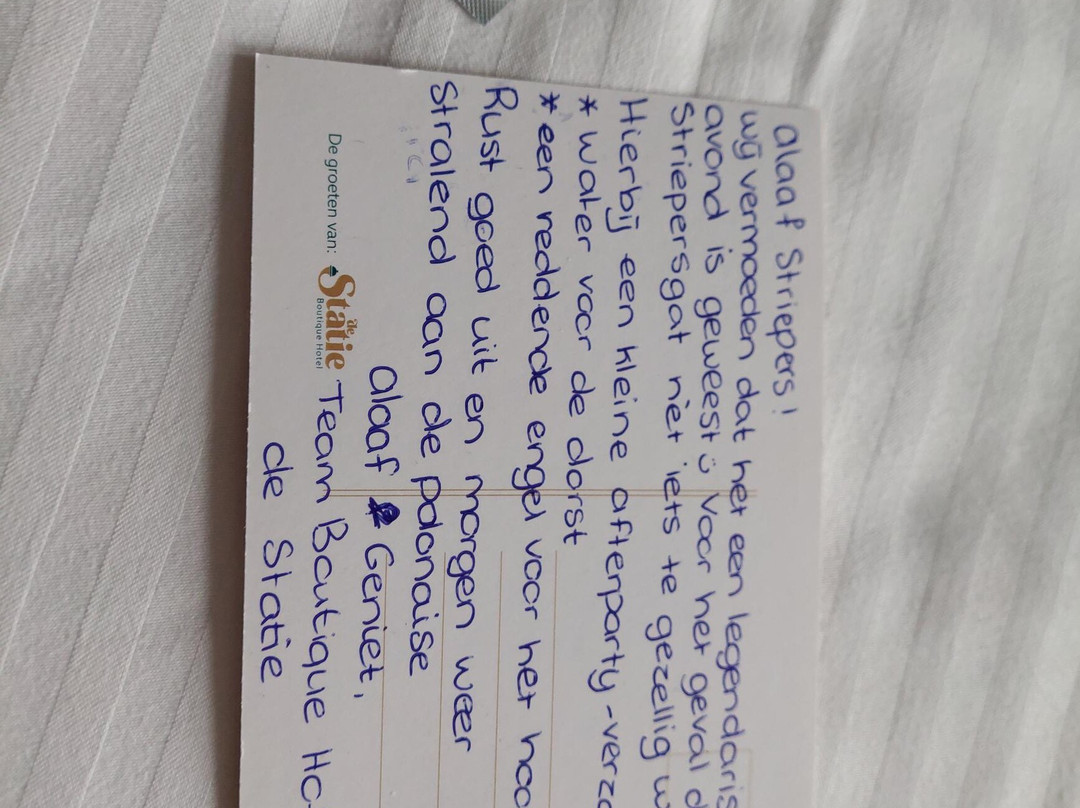 alaaf Striepers!
wij vermoeden dat het een legendaris
avond is geweest ü voor het geval d
Striepersgat nèt iets te gezellig w
Hierbij een kleine aftenparty-verzo
* water voor de dorst
* een reddende engel voor het hoo
Rust goed uit en morgen weer
Stralend aan de polonaise
alaaf & Geniet,
De groeten van: de Statie Boutique Hotel
Team Boutique Ho
de Statie